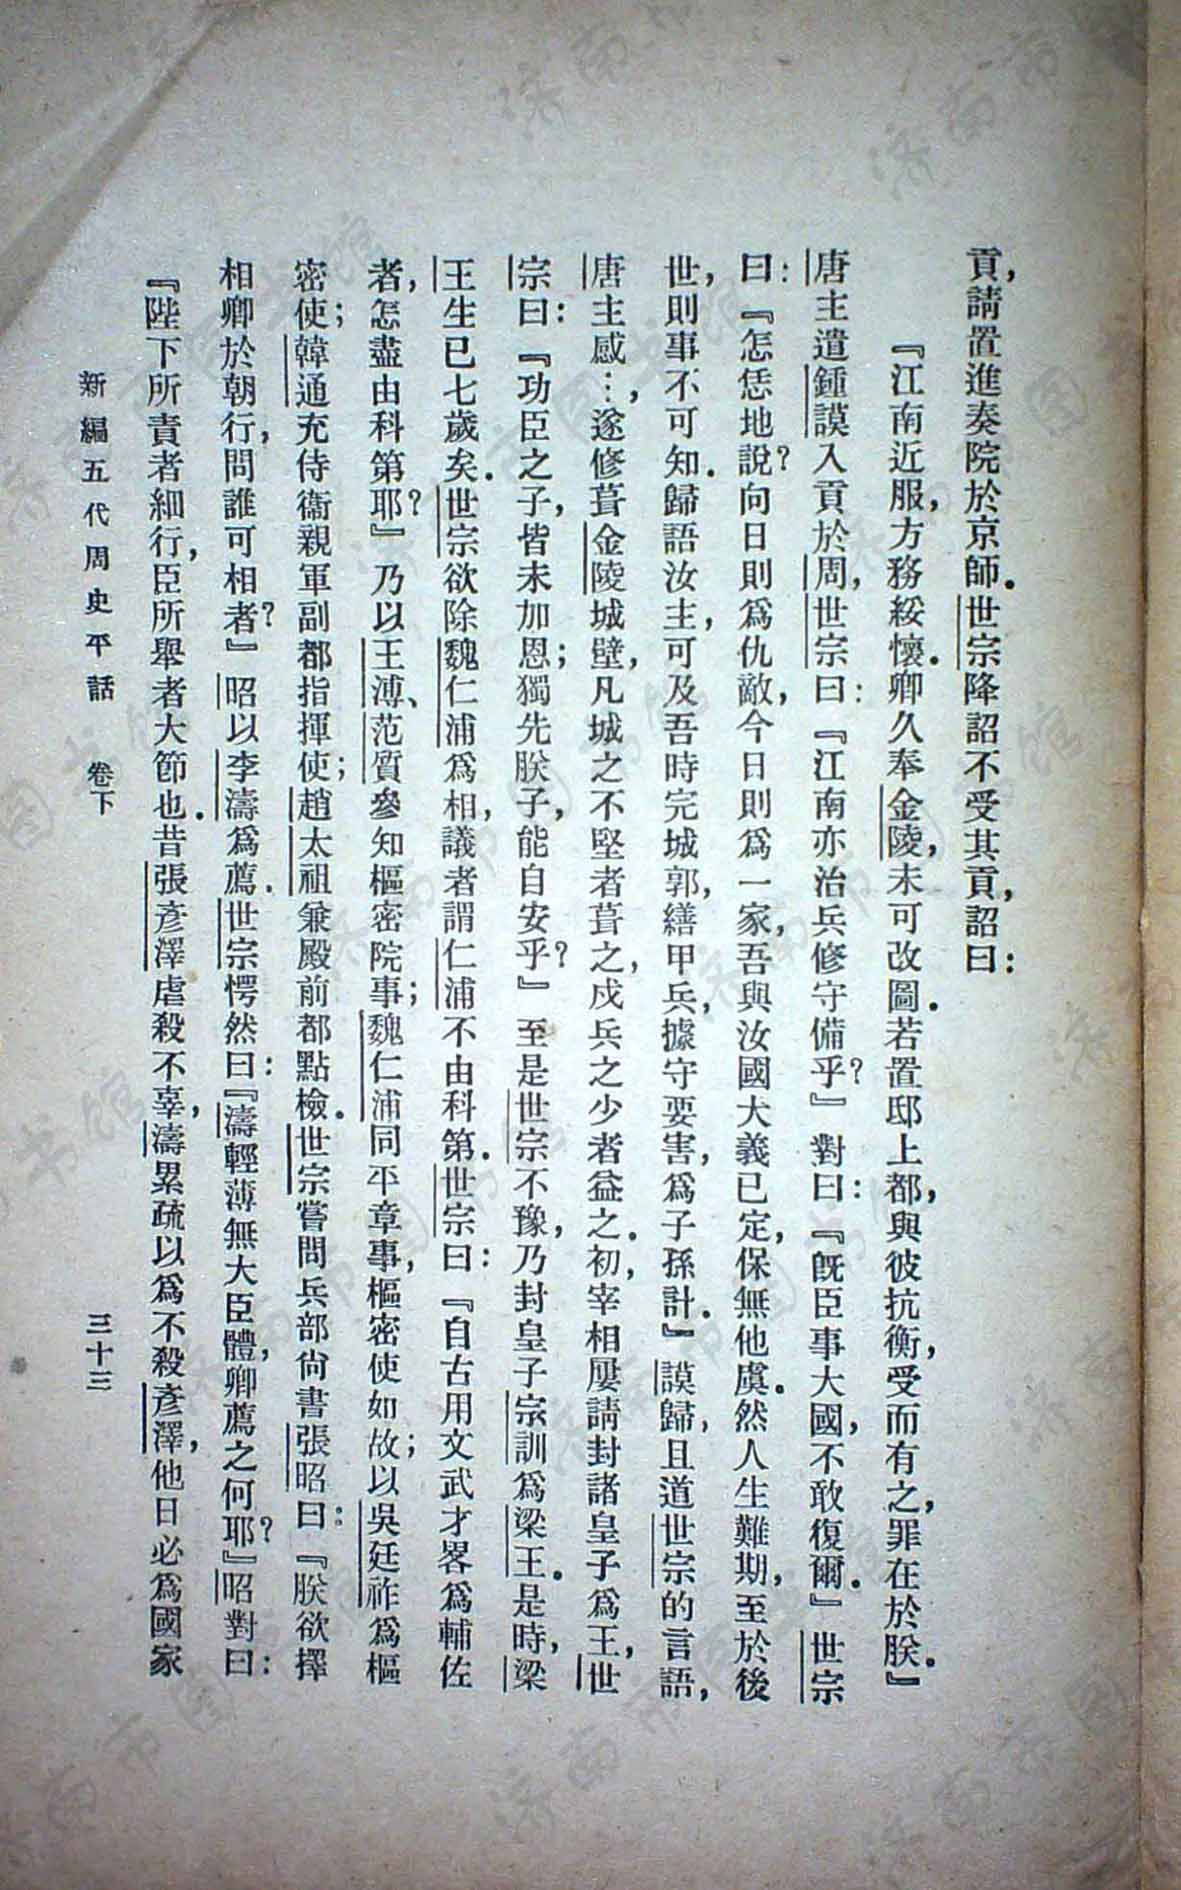 貢，請置進奏院於京師．世宗降詔不受其貢，詔曰：
『江南近服，方務綏懷．卿久奉金陵，未可改圖．若置邸上都，與彼抗衡，受而有之，罪在於朕．』
唐主遣鍾謨入貢於周，世宗曰：『江南亦治兵修守備乎？』對曰：『旣臣事大國，不敢復爾．』世宗
曰：『怎恁地說？向日則爲仇敵，今日則爲一家，吾與汝國大義已定，保無他虞．然人生難期，至於後
世，則事不可知．歸語汝主，可及吾時完城郭，繕甲兵，據守要害，爲子孫計．』謨歸，且道世宗的言語，
唐主感…，遂修葺金陵城壁，凡城之不堅者葺之，戍兵之少者益之．初，宰相屢請封諸皇子爲王，世
宗曰：『功臣之子，皆未加恩；獨先朕子，能自安乎？』至是世宗不豫，乃封皇子宗訓爲梁王．是時，梁
王生已七歲矣．世宗欲除魏仁浦爲相，議者謂仁浦不由科第．世宗曰：『自古用文武才畧爲輔佐
者，怎盡由科第耶？』乃以王溥、范質參知樞密院事；魏仁浦同平章事，樞密使如故；以吳廷祚爲樞
密使；韓通充侍衞親軍副都指揮使；趙太祖兼殿前都點檢．世宗嘗問兵部尚書張昭曰：『朕欲擇
相卿於朝行，問誰可相者？』昭以李濤爲薦．世宗愕然曰：『濤輕薄無大臣體，卿薦之何耶？』昭對曰：
『陛下所責者細行，臣所舉者大節也．昔張彥澤虐殺不辜，濤累疏以爲不殺彥澤，他日必爲國家
新編五代周史平話　卷下　三十三
濟南市图书馆